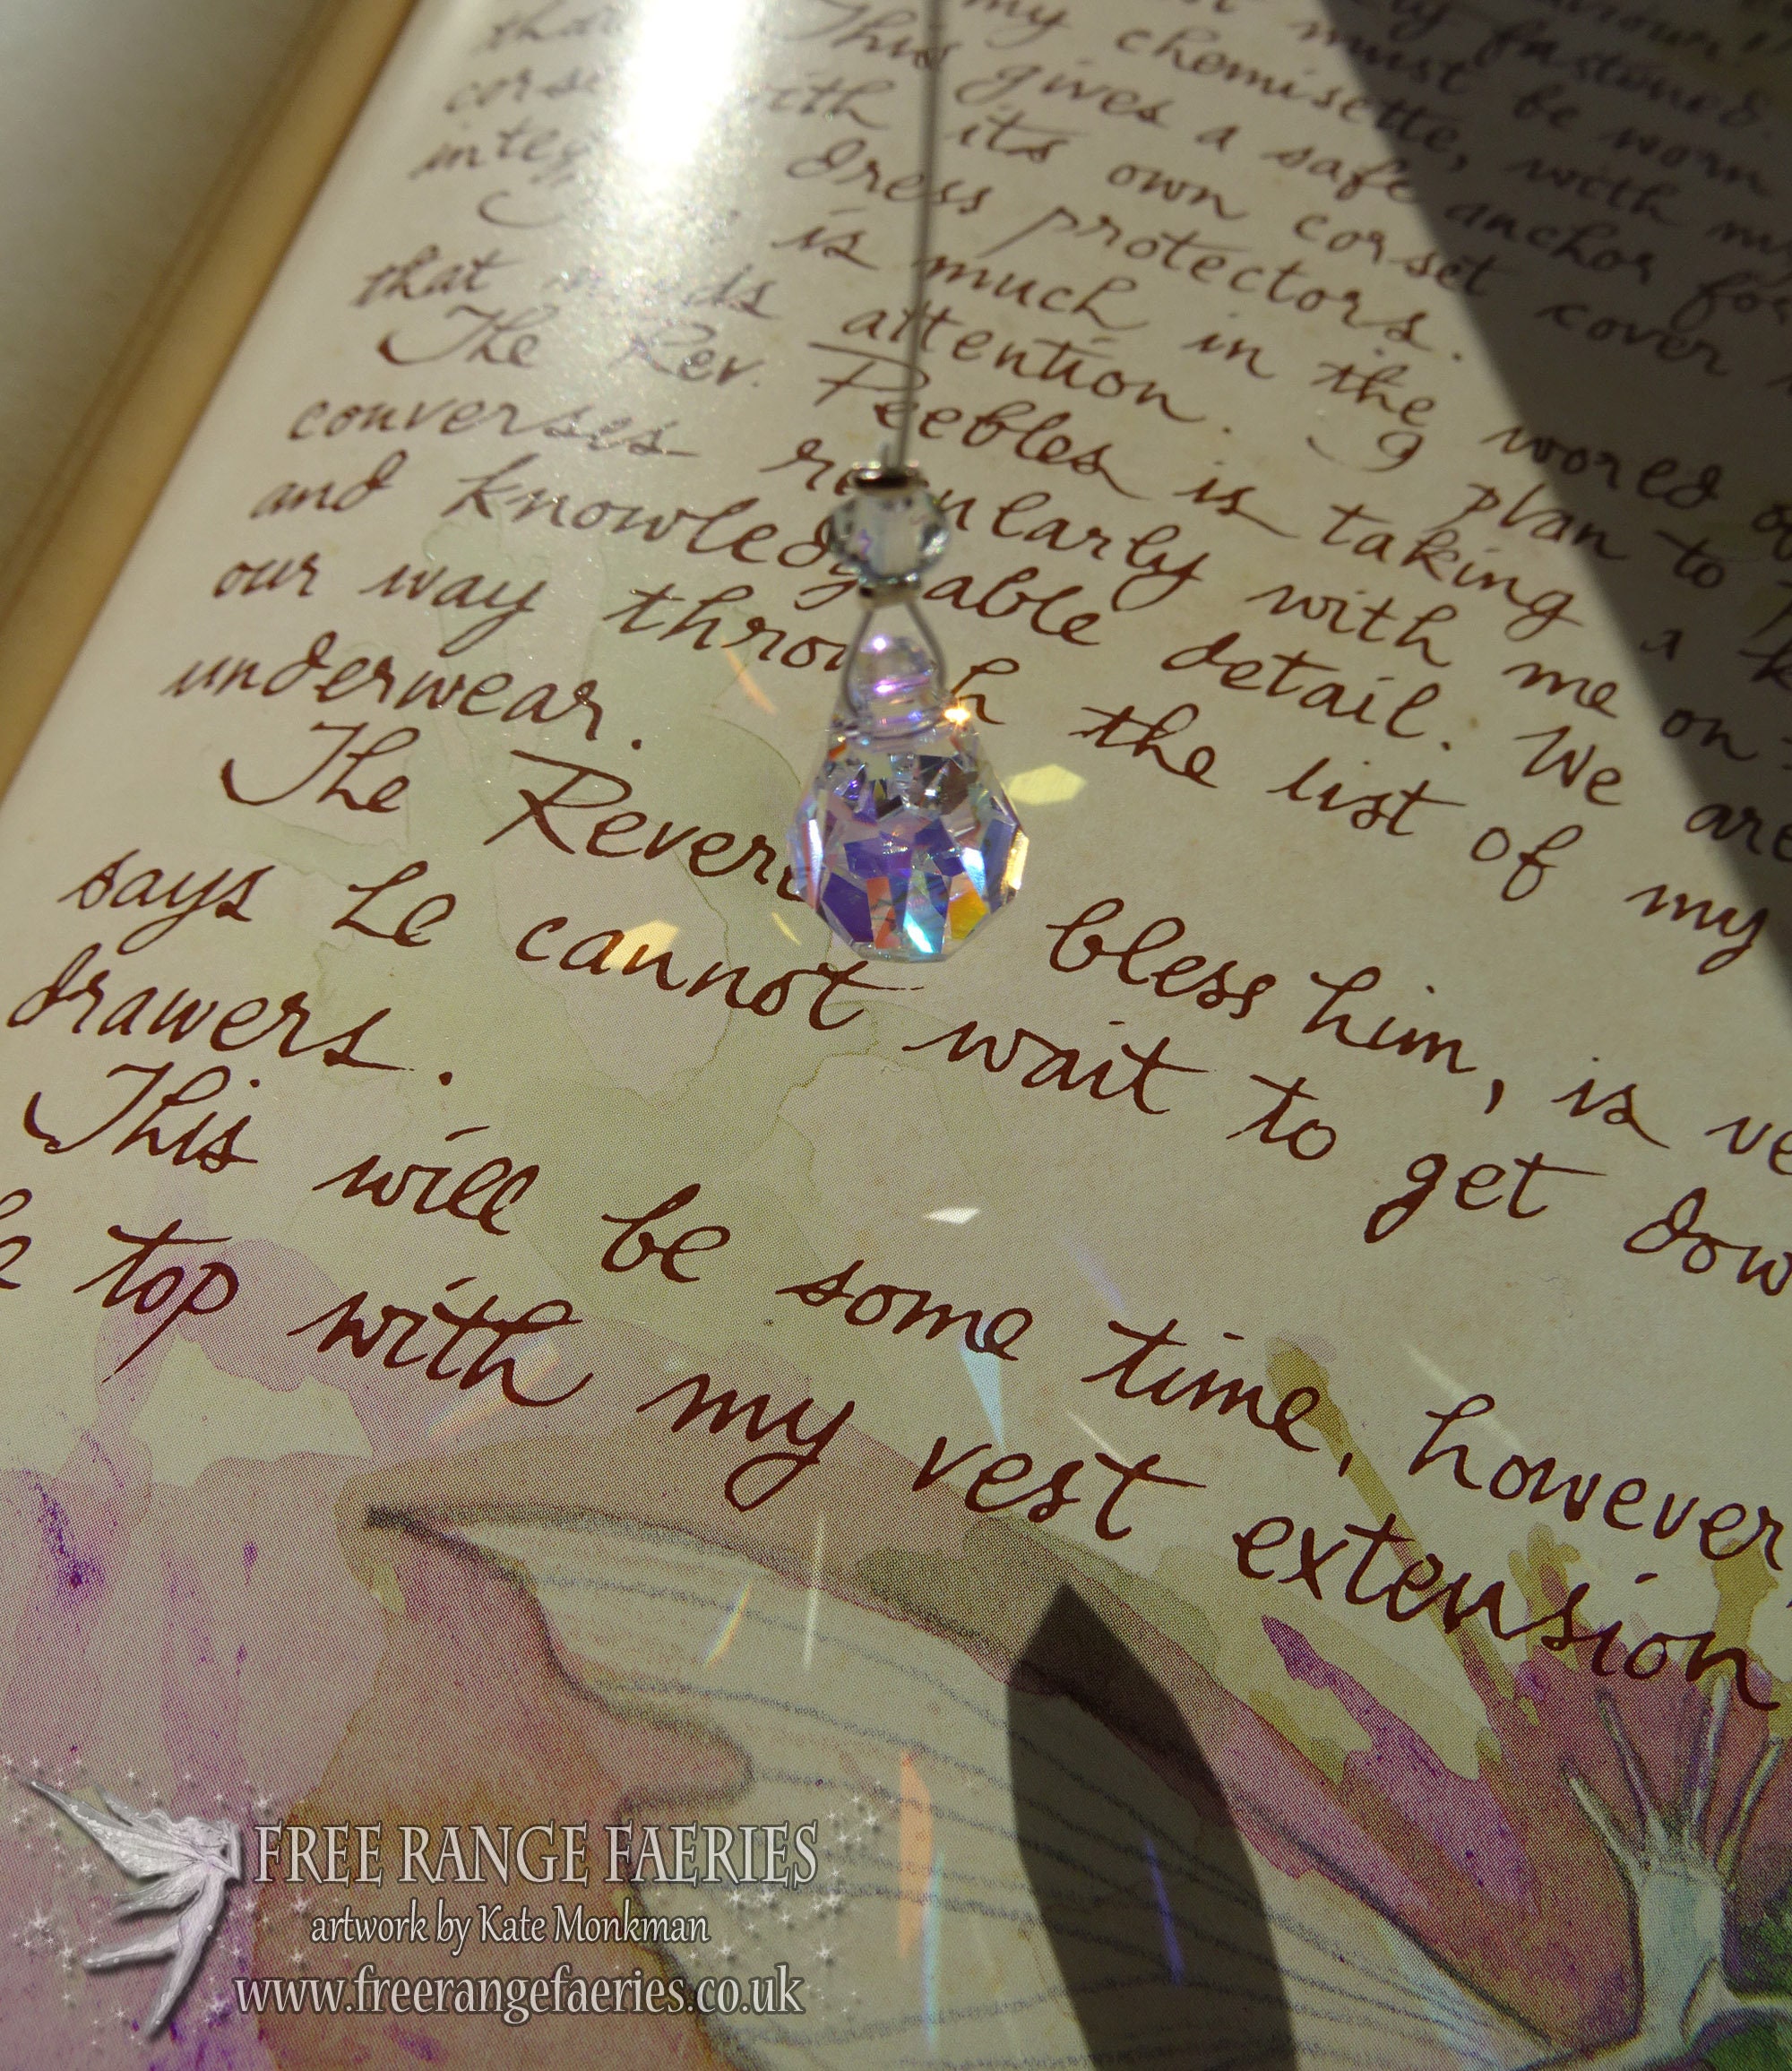 fastened.
must be worn
my chemisette, with my
This gives a safe anchor for
with its own corset cover
dress protectors.
is much in the world
that needs attention. I plan to
The Rev. Peebles is taking a
converses regularly with me on
and knowledgable detail. We are
our way through the list of my
underwear.
The Reverend bless him, is
says he cannot wait to get
drawers.
This will be some time, however,
top with my vest extension
FREE RANGE FAERIES
artwork by Kate Monkman
www.freerangefaeries.co.uk